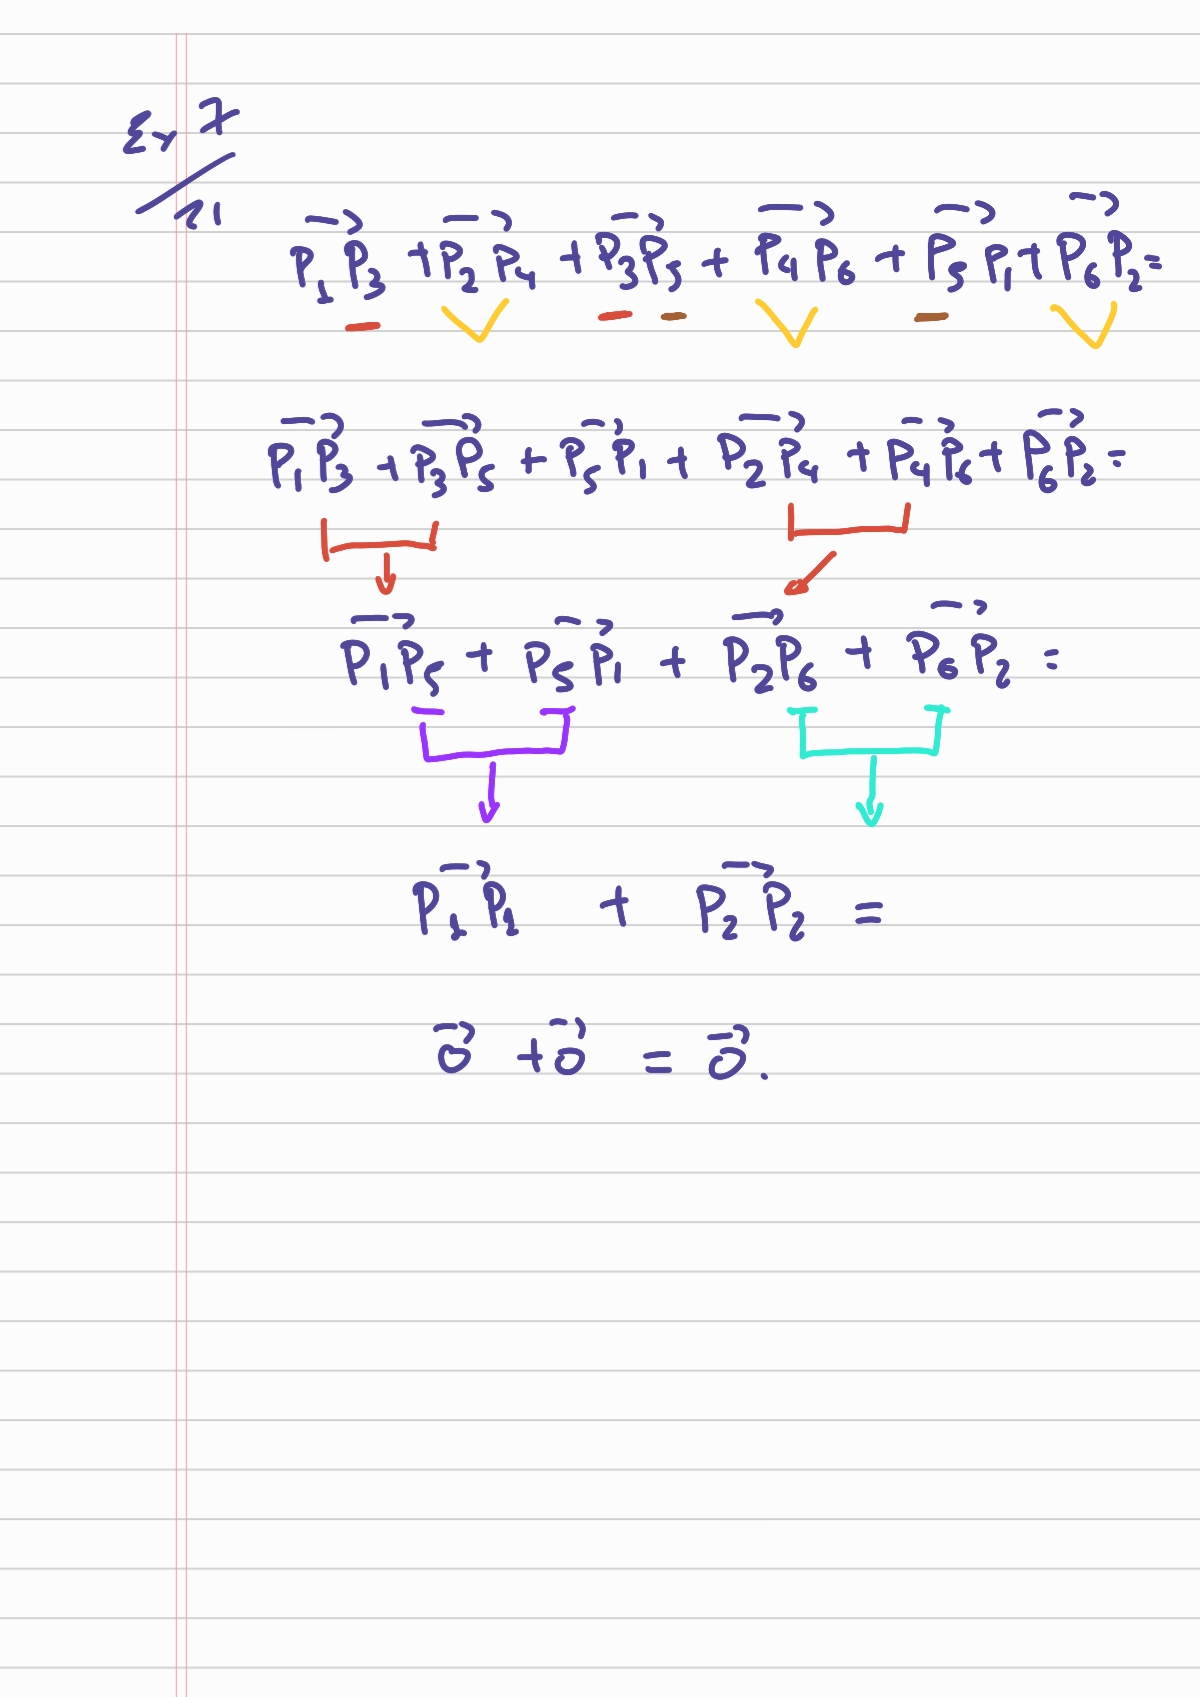 Ex 7
21
P₁P₃⃗ + P₂P₄⃗ + P₃P₅⃗ + P₄P₆⃗ + P₅P₁⃗ + P₆P₂⃗ =
P₁P₃⃗ + P₃P₅⃗ + P₅P₁⃗ + P₂P₄⃗ + P₄P₆⃗ + P₆P₂⃗ =
P₁P₅⃗ + P₅P₁⃗ + P₂P₆⃗ + P₆P₂⃗ =
P₁P₁⃗ + P₂P₂⃗ =
0⃗ + 0⃗ = 0⃗.